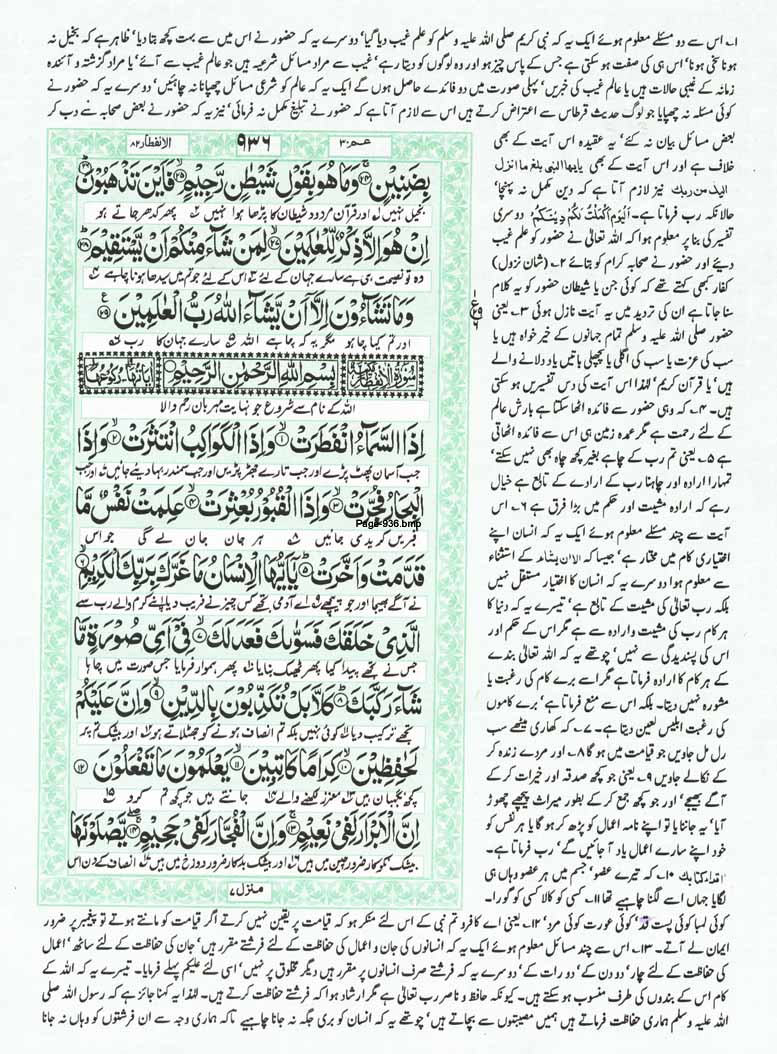 ۱۔ اس سے دو مسئلے معلوم ہوئے ایک یہ کہ نبی کریم صلی اللہ علیہ وسلم کو علم غیب دیا گیا' دوسرے یہ کہ حضور نے اس میں سے بہت کچھ بتا دیا' ظاہر ہے کہ بخیل نہ
ہونا سخی ہونا' اس ہی کی صفت ہو سکتی ہے جس کے پاس چیز ہو اور وہ لوگوں کو دیتا رہے' غیب سے مراد مسائل شرعیہ ہیں جو عالم غیب سے آئے' یا مراد گزشتہ و آئندہ
زمانہ کے غیبی حالات ہیں یا عالم غیب کی خبریں' پہلی صورت میں دو فائدے حاصل ہوں گے ایک یہ کہ عالم کو شرعی مسائل چھپانا نہ چاہئیں' دوسرے یہ کہ حضور نے
کوئی مسئلہ نہ چھپایا جو لوگ حدیث قرطاس سے اعتراض کرتے ہیں اس سے لازم آتا ہے کہ حضور نے تبلیغ مکمل نہ فرمائی' نیز یہ کہ حضور نے بعض صحابہ سے دب کر
بعض مسائل بیان نہ کئے' یہ عقیدہ اس آیت کے بھی
خلاف ہے اور اس آیت کے بھی یایها النبی بلغ ما انزل
الیک من ربک نیز لازم آتا ہے کہ دین مکمل نہ پہنچا'
حالانکہ رب فرماتا ہے۔ اَلْیَوْمَ اَکْمَلْتُ لَکُمْ دِیْنَکُمْ دوسری
تفسیر کی بنا پر معلوم ہوا کہ اللہ تعالیٰ نے حضور کو علم غیب
دیئے اور حضور نے صحابہ کرام کو بتائے ۲۔ (شان نزول)
کفار کبھی کہتے تھے کہ کوئی جن یا شیطان حضور کو یہ کلام
سنا جاتا ہے ان کی تردید میں یہ آیت نازل ہوئی ۳۔ یعنی
حضور صلی اللہ علیہ وسلم تمام جہانوں کے خیر خواہ ہیں یا
سب کی عزت یا سب کی اگلی یا پچھلی باتیں یاد دلانے والے
ہیں' یا قرآن کریم' لہذا اس آیت کی دس تفسیریں ہو سکتی
ہیں۔ ۴۔ کہ وہی حضور سے فائدہ اٹھا سکتا ہے بارش عالم
کے لئے رحمت ہے مگر عمدہ زمین ہی اس سے فائدہ اٹھاتی
ہے ۵۔ یعنی تم رب کے چاہے بغیر کچھ چاہ بھی نہیں سکتے'
تمہارا ارادہ اور چاہنا رب کے ارادے کے تابع ہے خیال
رہے کہ ارادہ مشیت اور حکم میں بڑا فرق ہے ۶۔ اس
آیت سے چند مسئلے معلوم ہوئے ایک یہ کہ انسان اپنے
اختیاری کام میں مختار ہے' جیسا کہ الا ان یشاء کے استثناء
سے معلوم ہوا دوسرے یہ کہ انسان کا اختیار مستقل نہیں
بلکہ رب تعالیٰ کی مشیت کے تابع ہے' تیسرے یہ کہ دنیا کا
ہر کام رب کی مشیت و ارادہ سے ہے مگر اس کے حکم اور
اس کی پسندیدگی سے نہیں' چوتھے یہ کہ اللہ تعالیٰ بندے
کے ہر کام کا ارادہ فرماتا ہے مگر اسے برے کام کی رغبت یا
مشورہ نہیں دیتا۔ بلکہ اس سے منع فرماتا ہے' برے کاموں
کی رغبت ابلیس لعین دیتا ہے۔ ۷۔ کہ کھاری میٹھے سب
رل مل جاویں جو قیامت میں ہو گا ۸۔ اور مردے زندہ کر
کے نکالے جاویں ۹۔ یعنی جو کچھ صدقہ اور خیرات کر کے
آگے بھیجے' اور جو کچھ جمع کر کے بطور میراث پیچھے چھوڑ
آیا' یہ جاننا یا تو اپنے نامہ اعمال کو پڑھ کر ہو گا یا ہر نفس کو
خود اپنے سارے اعمال یاد آ جائیں گے' رب فرماتا ہے۔
اقرا کتابک ۱۰۔ کہ تیرے عضو' جسم میں ہر عضو وہاں ہی
لگایا جہاں اسے لگنا چاہیے تھا ۱۱۔ کسی کو کالا کسی کو گورا۔
عم ۳۰
۹۳۶
الانفطار ۸۲
بِضَنِیْنٍ وَمَا هُوَ بِقَوْلِ شَیْطٰنٍ رَّجِیْمٍ فَاَیْنَ تَذْهَبُوْنَ
بخیل نہیں اور قرآن مردود شیطان کا پڑھا ہوا نہیں پھر کدھر جاتے ہو
اِنْ هُوَ اِلَّا ذِکْرٌ لِّلْعٰلَمِیْنَ لِمَنْ شَآءَ مِنْکُمْ اَنْ یَّسْتَقِیْمَ
وہ تو نصیحت ہی ہے سارے جہان کے لئے اس کے لئے جو تم میں سیدھا ہونا چاہے
وَمَا تَشَآءُوْنَ اِلَّا اَنْ یَّشَآءَ اللّٰهُ رَبُّ الْعٰلَمِیْنَ
اور تم کیا چاہو مگر یہ کہ چاہے اللہ سارے جہان کا رب
سُوْرَةُ الْاِنْفِطَارِ بِسْمِ اللّٰهِ الرَّحْمٰنِ الرَّحِیْمِ
اللہ کے نام سے شروع جو نہایت مہربان رحم والا
اِذَا السَّمَآءُ انْفَطَرَتْ وَاِذَا الْکَوَاکِبُ انْتَثَرَتْ وَاِذَا
جب آسمان پھٹ پڑے اور جب تارے جھڑ پڑیں اور جب سمندر بہا دیئے جائیں اور جب
الْبِحَارُ فُجِّرَتْ وَاِذَا الْقُبُوْرُ بُعْثِرَتْ عَلِمَتْ نَفْسٌ مَّا
Page-936.bmp
قبریں کریدی جائیں ہر جان جان لے گی جو اس
قَدَّمَتْ وَاَخَّرَتْ یٰۤاَیُّهَا الْاِنْسَانُ مَا غَرَّکَ بِرَبِّکَ الْکَرِیْمِ
نے آگے بھیجا اور جو پیچھے اے آدمی تجھے کس چیز نے فریب دیا اپنے کرم والے رب سے
الَّذِیْ خَلَقَکَ فَسَوّٰىکَ فَعَدَلَکَ فِیْۤ اَیِّ صُوْرَةٍ مَّا
جس نے تجھے پیدا کیا پھر ٹھیک بنایا پھر ہموار فرمایا جس صورت میں چاہا
شَآءَ رَکَّبَکَ کَلَّا بَلْ تُکَذِّبُوْنَ بِالدِّیْنِ وَاِنَّ عَلَیْکُمْ
تجھے ترکیب دیا کوئی نہیں بلکہ تم انصاف ہونے کو جھٹلاتے ہو اور بیشک تم پر
لَحٰفِظِیْنَ کِرَامًا کَاتِبِیْنَ یَعْلَمُوْنَ مَا تَفْعَلُوْنَ
کچھ نگہبان ہیں معزز لکھنے والے جانتے ہیں جو کچھ تم کرو
اِنَّ الْاَبْرَارَ لَفِیْ نَعِیْمٍ وَاِنَّ الْفُجَّارَ لَفِیْ جَحِیْمٍ یَّصْلَوْنَهَا
بیشک نکو کار ضرور چین میں ہیں اور بیشک بدکار ضرور دوزخ میں ہیں انصاف کے دن اس
منزل ۷
کوئی لمبا کوئی پست قد' کوئی عورت کوئی مرد' ۱۲۔ یعنی اے کافرو تم نبی کے اس لئے منکر ہو کہ قیامت پر یقین نہیں کرتے اگر قیامت کو مانتے ہوتے تو پیغمبر پر ضرور
ایمان لے آتے۔ ۱۳۔ اس سے چند مسائل معلوم ہوئے ایک یہ کہ انسانوں کی جان و اعمال کی حفاظت کے لئے فرشتے مقرر ہیں' جان کی حفاظت کے لئے ساٹھ' اعمال
کی حفاظت کے لئے چار' دو دن کے' دو رات کے' دوسرے یہ کہ فرشتے صرف انسانوں پر مقرر ہیں دیگر مخلوق پر نہیں' اسی لئے علیکم پہلے فرمایا۔ تیسرے یہ کہ اللہ کے
کام اس کے بندوں کی طرف منسوب ہو سکتے ہیں۔ کیونکہ حافظ و ناصر رب تعالیٰ ہے مگر ارشاد ہوا کہ فرشتے حفاظت کرتے ہیں۔ لہذا یہ کہنا جائز ہے کہ رسول اللہ صلی
اللہ علیہ وسلم ہماری حفاظت فرماتے ہیں ہمیں مصیبتوں سے بچاتے ہیں' چوتھے یہ کہ انسان کو بری جگہ نہ جانا چاہیے تاکہ ہماری وجہ سے ان فرشتوں کو وہاں نہ جانا